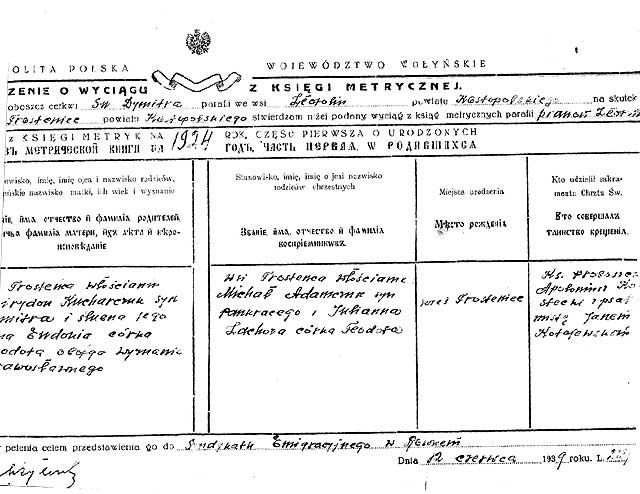 OLITA POLSKA WOJEWÓDZTWO WOŁYŃSKIE
ZENIE O WYCIĄGU Z KSIĘGI METRYCZNEJ.
oboszcz cerkwi Św Dymitra parafii we wsi powiatu Kostopolskiego na skutek
Trosteniec powiatu Kostopolskiego stwierdzam niżej podany wyciąg z ksiąg metrycznych parafii
z KSIĘGI METRYK NA 1924 ROK, CZĘŚĆ PIERWSZA O URODZONYCH
ъ МЕТРИЧЕСКОЙ КНИГИ НА ГОДЪ, ЧАСТЬ ПЕРВАЯ, О РОДИВШИХСЯ
owisko, imię, imię ojca i nazwisko rodziców,
eńskie nazwisko matki, ich wiek i wyznanie
ніе, имя, отчество и фамилія родителей,
ичья фамилія матери, ихъ лѣта и вѣро-
исповѣданіе
Stanowisko, imię, imię o jca i nazwisko
rodziców chrzestnych
Званіе, имя, отчество и фамилія
воспріемниковъ.
Miejsce urodzenia
Мѣсто рожденія
Kto udzielił sakra-
mentu Chrztu Św.
Кто совершалъ
таинство крещенія.
Trostenca włościanin
irydon Kucharczuk syn
mitra i ślubna jego
na Eudokia córka
odota obojga wyznania
awosławnego
wsi Trostenca włościanie
Michał Adamczuk syn
Pankracego i Julianna
córka Teodota
wieś Trosteniec
Ks.
Apoloniusz Ko
stecki i psal
mistą Janem
pelenia celem przedstawienia go do Syndykatu Emigracyjnego w Równem
Dnia 12 czerwca 1939 roku. L.